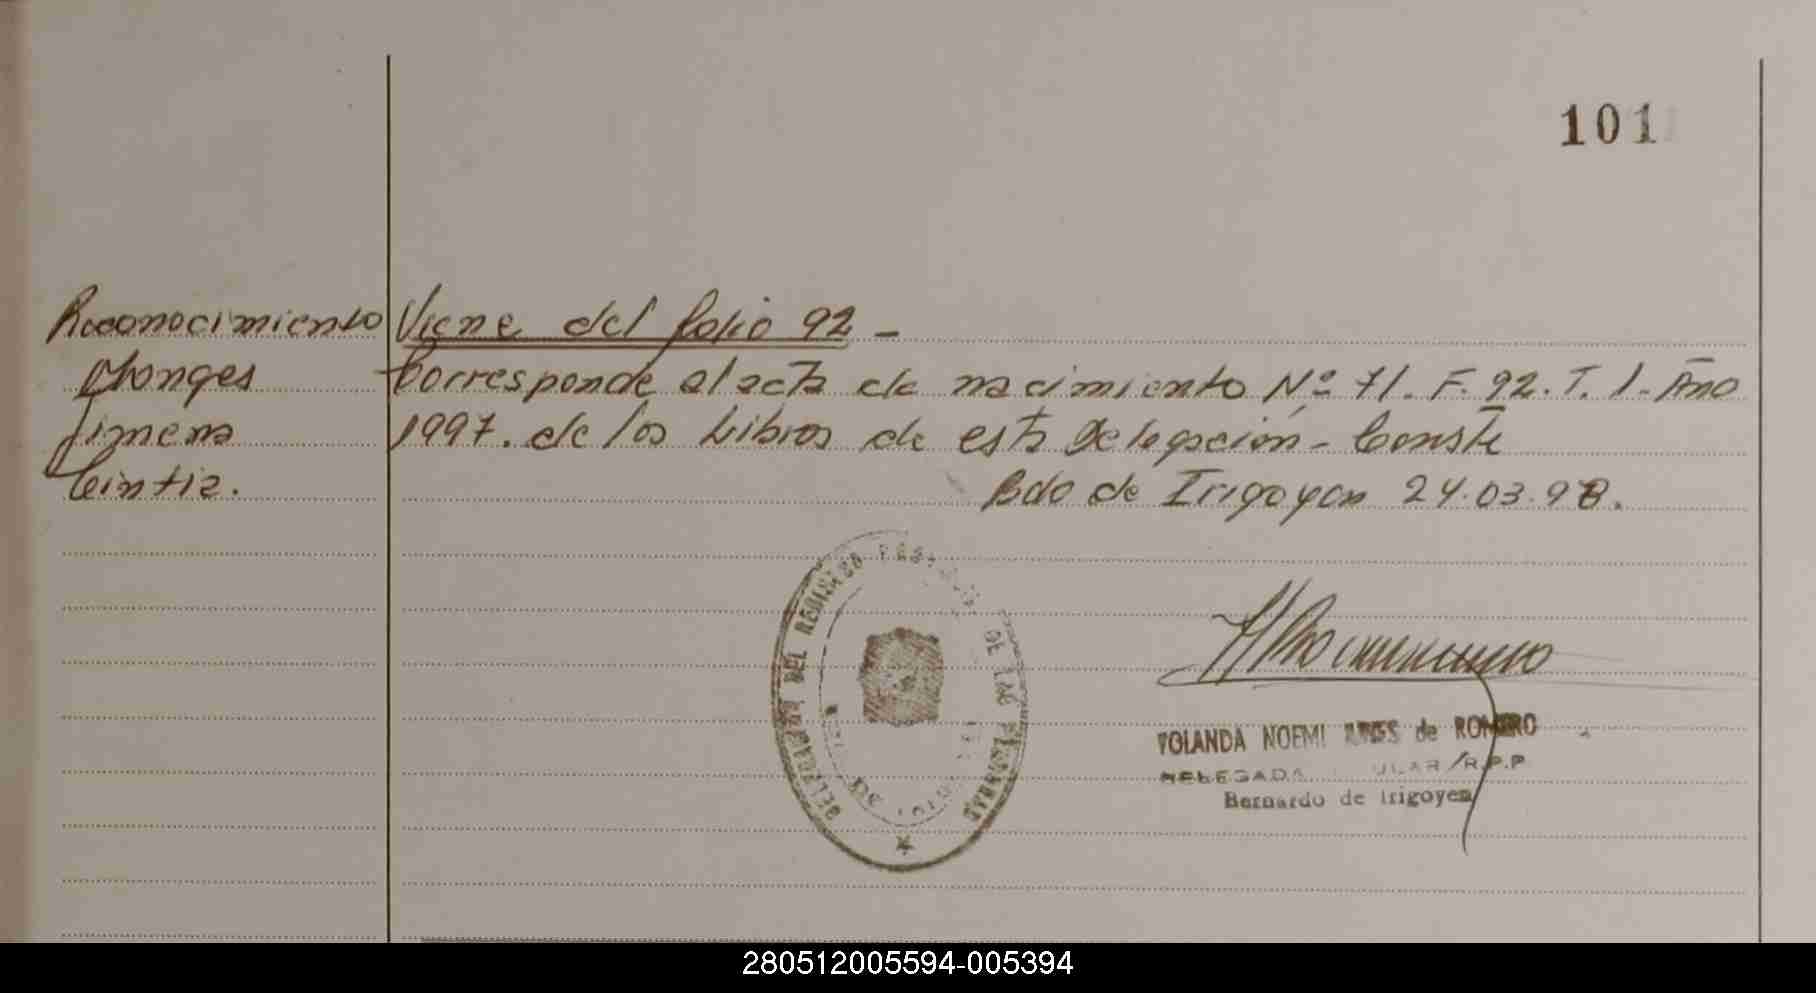 101
Reconocimiento
Jimena
Cintia.
Viene del folio 92 -
Corresponde al acta de nacimiento Nº 71. F. 92. T. 1. Año
1997. de los Libros de esta Delegación - Conste
Bdo de Irigoyen 24.03.98.
DELEGACION DEL REGISTRO DE LAS PERSONAS
YOLANDA NOEMI de ROMERO
DELEGADA /R.P.P
Bernardo de Irigoyen
280512005594-005394